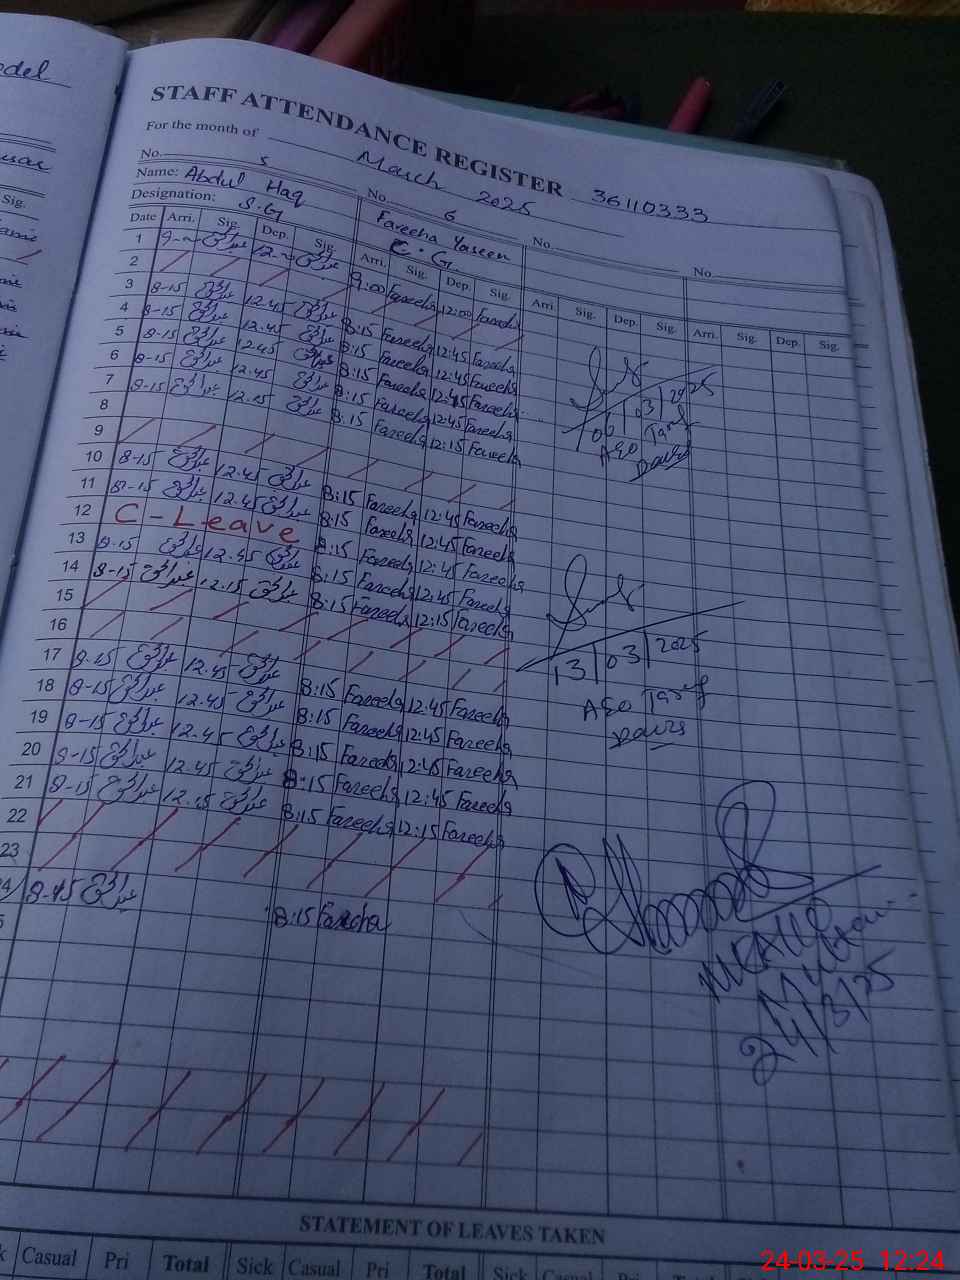 STAFF ATTENDANCE REGISTER 36110333
For the month of March 2025
No. 5 No. 6 No. No.
Name: Abdul Haq Fareeha Yaseen
Designation: S.G C.G.
Date Arri. Sig. Dep. Sig. Arri. Sig. Dep. Sig. Arri. Sig. Dep. Sig. Arri. Sig. Dep. Sig.
1 9-~ 12-~ 9:00 Fareeha 12:00 Fareeha
2
3 8-15 12.45 8:15 Fareeha 12:45 Fareeha
4 8-15 12.45 8:15 Fareeha 12:45 Fareeha
5 8-15 12.45 8:15 Fareeha 12:45 Fareeha
6 8-15 12.45 8:15 Fareeha 12:45 Fareeha
7 8-15 12.15 8:15 Fareeha 12:15 Fareeha
8
9
10 8-15 12.45 8:15 Fareeha 12:45 Fareeha
11 8-15 12.45 8:15 Fareeha 12:45 Fareeha
12 C-Leave 8:15 Fareeha 12:45 Fareeha
13 8-15 12.45 8:15 Fareeha 12:45 Fareeha
14 8-15 12.15 8:15 Fareeha 12:15 Fareeha
15
16
17 8-15 12.45 8:15 Fareeha 12:45 Fareeha
18 8-15 12.45 8:15 Fareeha 12:45 Fareeha
19 8-15 12.45 8:15 Fareeha 12:45 Fareeha
20 8-15 12.45 8:15 Fareeha 12:45 Fareeha
21 8-15 12.15 8:15 Fareeha 12:15 Fareeha
22
23
8-45 8:15 Fareeha
06/03/2025
AEO
13/03/2025
AEO
24/3/25
STATEMENT OF LEAVES TAKEN
Casual Pri Total Sick Casual Pri Total Sick Casual Pri
24-03-25 12:24